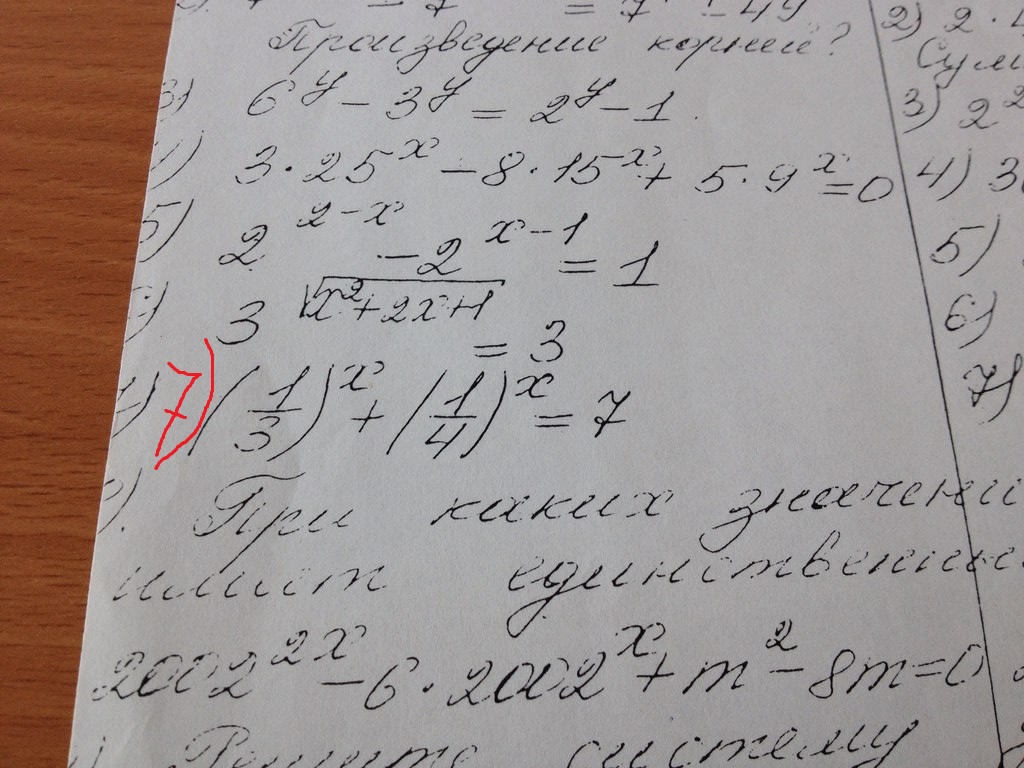 = 7 = 49
Произведение корней?
3) 6^y - 3^y = 2^y - 1
4) 3·25^x - 8·15^x + 5·9^x = 0
5) 2^{2-x} - 2^{x-1} = 1
6) 3^{√(x²+2x+1)} = 3
7) (1/3)^x + (1/4)^x = 7
При каких значени
имеет единственны
2002^{2x} - 6·2002^x + m² - 8m = 0
Решите систему
2) 2·
Сум
3) 2²
4) 3
5)
6)
7)